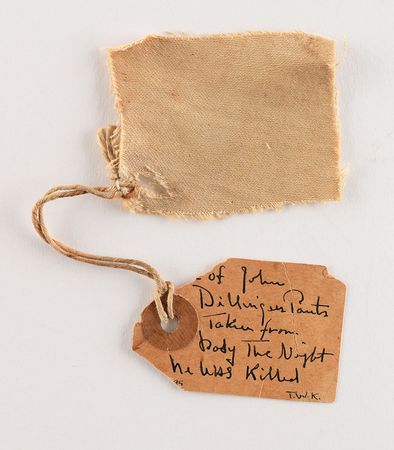 - of John
Dillinger Pants
Taken from
body The Night
he was Killed
T.W.K.